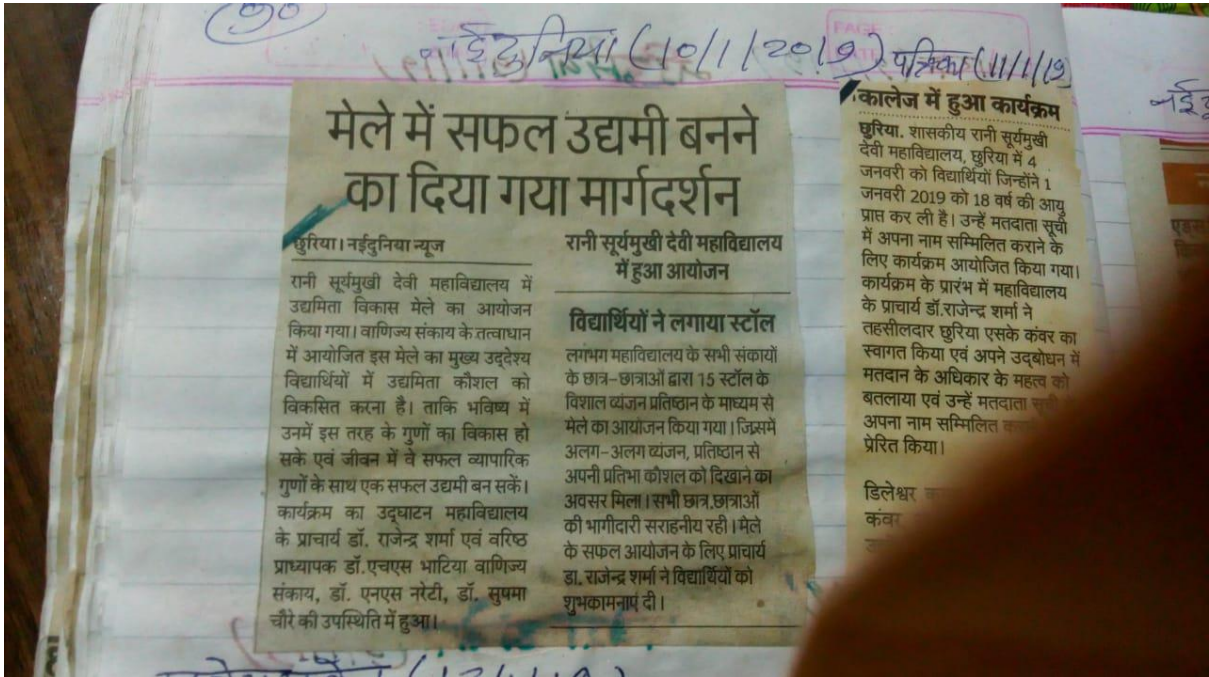 नईदुनिया (10/1/2019)
मेले में सफल उद्यमी बनने
का दिया गया मार्गदर्शन
छुरिया। नईदुनिया न्यूज
रानी सूर्यमुखी देवी महाविद्यालय में
उद्यमिता विकास मेले का आयोजन
किया गया। वाणिज्य संकाय के तत्वाधान
में आयोजित इस मेले का मुख्य उद्देश्य
विद्यार्थियों में उद्यमिता कौशल को
विकसित करना है। ताकि भविष्य में
उनमें इस तरह के गुणों का विकास हो
सके एवं जीवन में वे सफल व्यापारिक
गुणों के साथ एक सफल उद्यमी बन सकें।
कार्यक्रम का उद्घाटन महाविद्यालय
के प्राचार्य डॉ. राजेन्द्र शर्मा एवं वरिष्ठ
प्राध्यापक डॉ.एचएस भाटिया वाणिज्य
संकाय, डॉ. एनएस नरेटी, डॉ. सुषमा
चौरे की उपस्थिति में हुआ।
रानी सूर्यमुखी देवी महाविद्यालय
में हुआ आयोजन
विद्यार्थियों ने लगाया स्टॉल
लगभग महाविद्यालय के सभी संकायों
के छात्र-छात्राओं द्वारा 15 स्टॉल के
विशाल व्यंजन प्रतिष्ठान के माध्यम से
मेले का आयोजन किया गया। जिसमें
अलग-अलग व्यंजन, प्रतिष्ठान से
अपनी प्रतिभा कौशल को दिखाने का
अवसर मिला। सभी छात्र,छात्राओं
की भागीदारी सराहनीय रही। मेले
के सफल आयोजन के लिए प्राचार्य
डा. राजेन्द्र शर्मा ने विद्यार्थियों को
शुभकामनाएं दी।
पत्रिका (11/1/19)
कालेज में हुआ कार्यक्रम
छुरिया. शासकीय रानी सूर्यमुखी
देवी महाविद्यालय, छुरिया में 4
जनवरी को विद्यार्थियों जिन्होंने 1
जनवरी 2019 को 18 वर्ष की आयु
प्राप्त कर ली है। उन्हें मतदाता सूची
में अपना नाम सम्मिलित कराने के
लिए कार्यक्रम आयोजित किया गया।
कार्यक्रम के प्रारंभ में महाविद्यालय
के प्राचार्य डॉ.राजेन्द्र शर्मा ने
तहसीलदार छुरिया एसके कंवर का
स्वागत किया एवं अपने उद्बोधन में
मतदान के अधिकार के महत्व को
बतलाया एवं उन्हें मतदाता
अपना नाम सम्मिलित
प्रेरित किया।
डिलेश्वर
कंवर